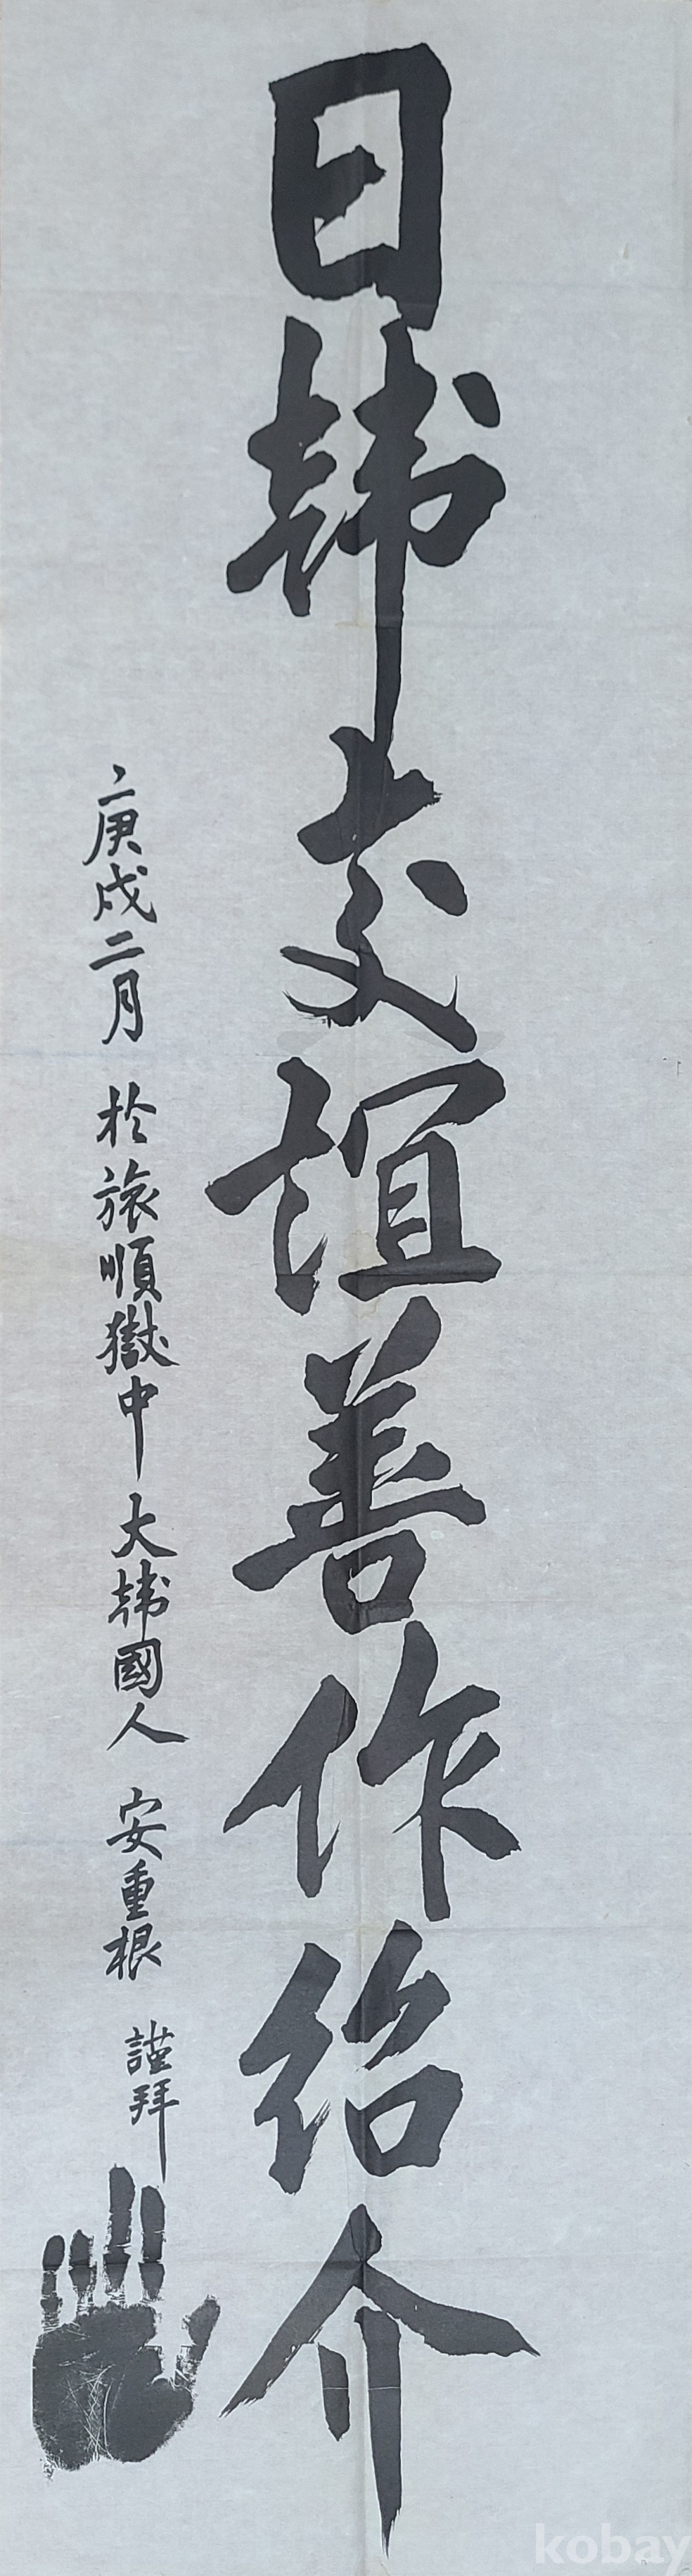 日韓交誼善作紹介
庚戌二月 於旅順獄中 大韓國人 安重根 謹拜
kobay